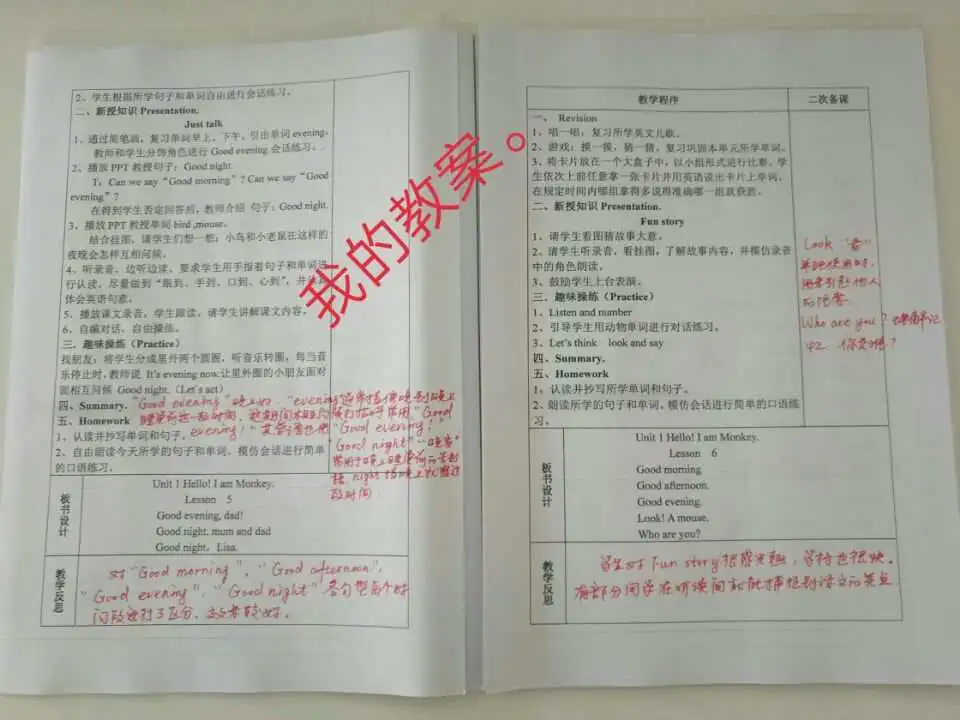 2、学生根据所学句子和单词自由进行会话练习。
二、新授知识 Presentation.
Just talk
1、通过简笔画,复习单词早上、下午,引出单词 evening,
教师和学生分饰角色进行 Good evening 会话练习。
2、播放 PPT 教授句子:Good night
T:Can we say "Good morning"? Can we say "Good
evening"?
在得到学生否定回答后,教师介绍 句子:Good night.
3、播放 PPT 教授单词 bird ,mouse。
结合挂图,请学生们想一想:小鸟和小老鼠在这样的
夜晚会怎样互相问候。
4、听录音,边听边读,要求学生用手指着句子和单词进
行认读,尽量做到"眼到、手到、口到、心到",并
体会英语句意。
5、播放课文录音,学生跟读。请学生讲解课文内容。
6、自编对话、自由操练。
三、趣味操练(Practice)
找朋友:将学生分成里外两个圆圈,听音乐转圈,每当音
乐停止时,教师说 It's evening now.让里外圈的小朋友面对
面相互问候 Good night.(Let's act)
四、Summary. "Good evening" 晚上好. "evening
五、Homework evening!"
"Good evening!"
"Good night" "晚安"
1、认读并抄写单词和句子。
2、自由朗读今天所学的句子和单词。模仿会话进行简单
的口语练习。
板书设计
Unit 1 Hello! I am Monkey.
Lesson 5
Good evening, dad!
Good night, mum and dad
Good night, Lisa.
教学反思
对"Good morning", "Good afternoon",
"Good evening", "Good night"各句型每个时
间段进行了区分,效果较好。
我的教案。
教学程序
二次备课
一、 Revision
1、唱一唱:复习所学英文儿歌。
2、游戏:摸一摸,猜一猜。复习巩固本单元所学单词。
3、将卡片放在一个大盒子中,以小组形式进行比赛。学
生依次上前任意拿一张卡片并用英语说出卡片上单词。
在规定时间内哪组拿得多说得准确哪一组就获胜。
二、新授知识 Presentation.
Fun story
1、请学生看图猜故事大意。
2、请学生听录音,看挂图,了解故事内容,并模仿录音
中的角色朗读。
3、鼓励学生上台表演。
三、趣味操练(Practice)
1、Listen and number
2、引导学生用动物单词进行对话练习。
3、Let's think look and say
四、Summary.
五、Homework
1、认读并抄写所学单词和句子。
2、朗读所学的句子和单词。模仿会话进行简单的口语练
习。
Look "看"
单独使用时,
用来引起他人
的注意
Who are you?
板书设计
Unit 1 Hello! I am Monkey.
Lesson 6
Good morning
Good afternoon.
Good evening.
Look! A mouse.
Who are you?
教学反思
学生对 Fun story 很感兴趣,学得也很快。
有部分同学在听读间就能捕捉到课文的笑点